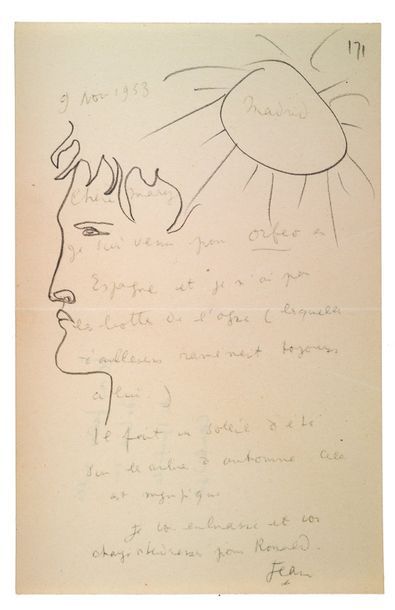 171
9 Nov 1953
Madrid
Chère Mary
Je suis venu pour Orfeo en
Espagne et je n'ai pas
les bottes de l'ogre (lesquelles
d'ailleurs ramenent toujours
à lui.)
Il fait un soleil d'été
sur arbre d'automne
est magnifique
Je vous embrasse et vous
pour Ronald.
Jean